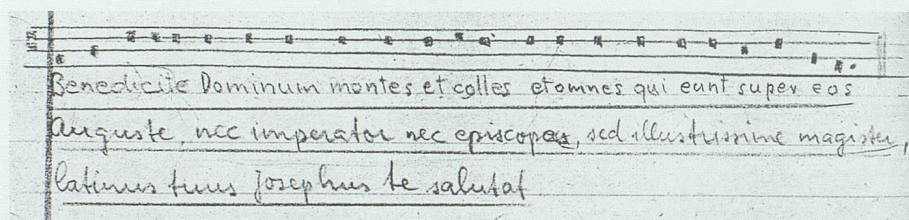 Benedicite Dominum montes et colles et omnes qui eunt super eos
Auguste, nec imperator nec episcopes, sed illustrissime magister,
latinus tuus Josephus te salutat